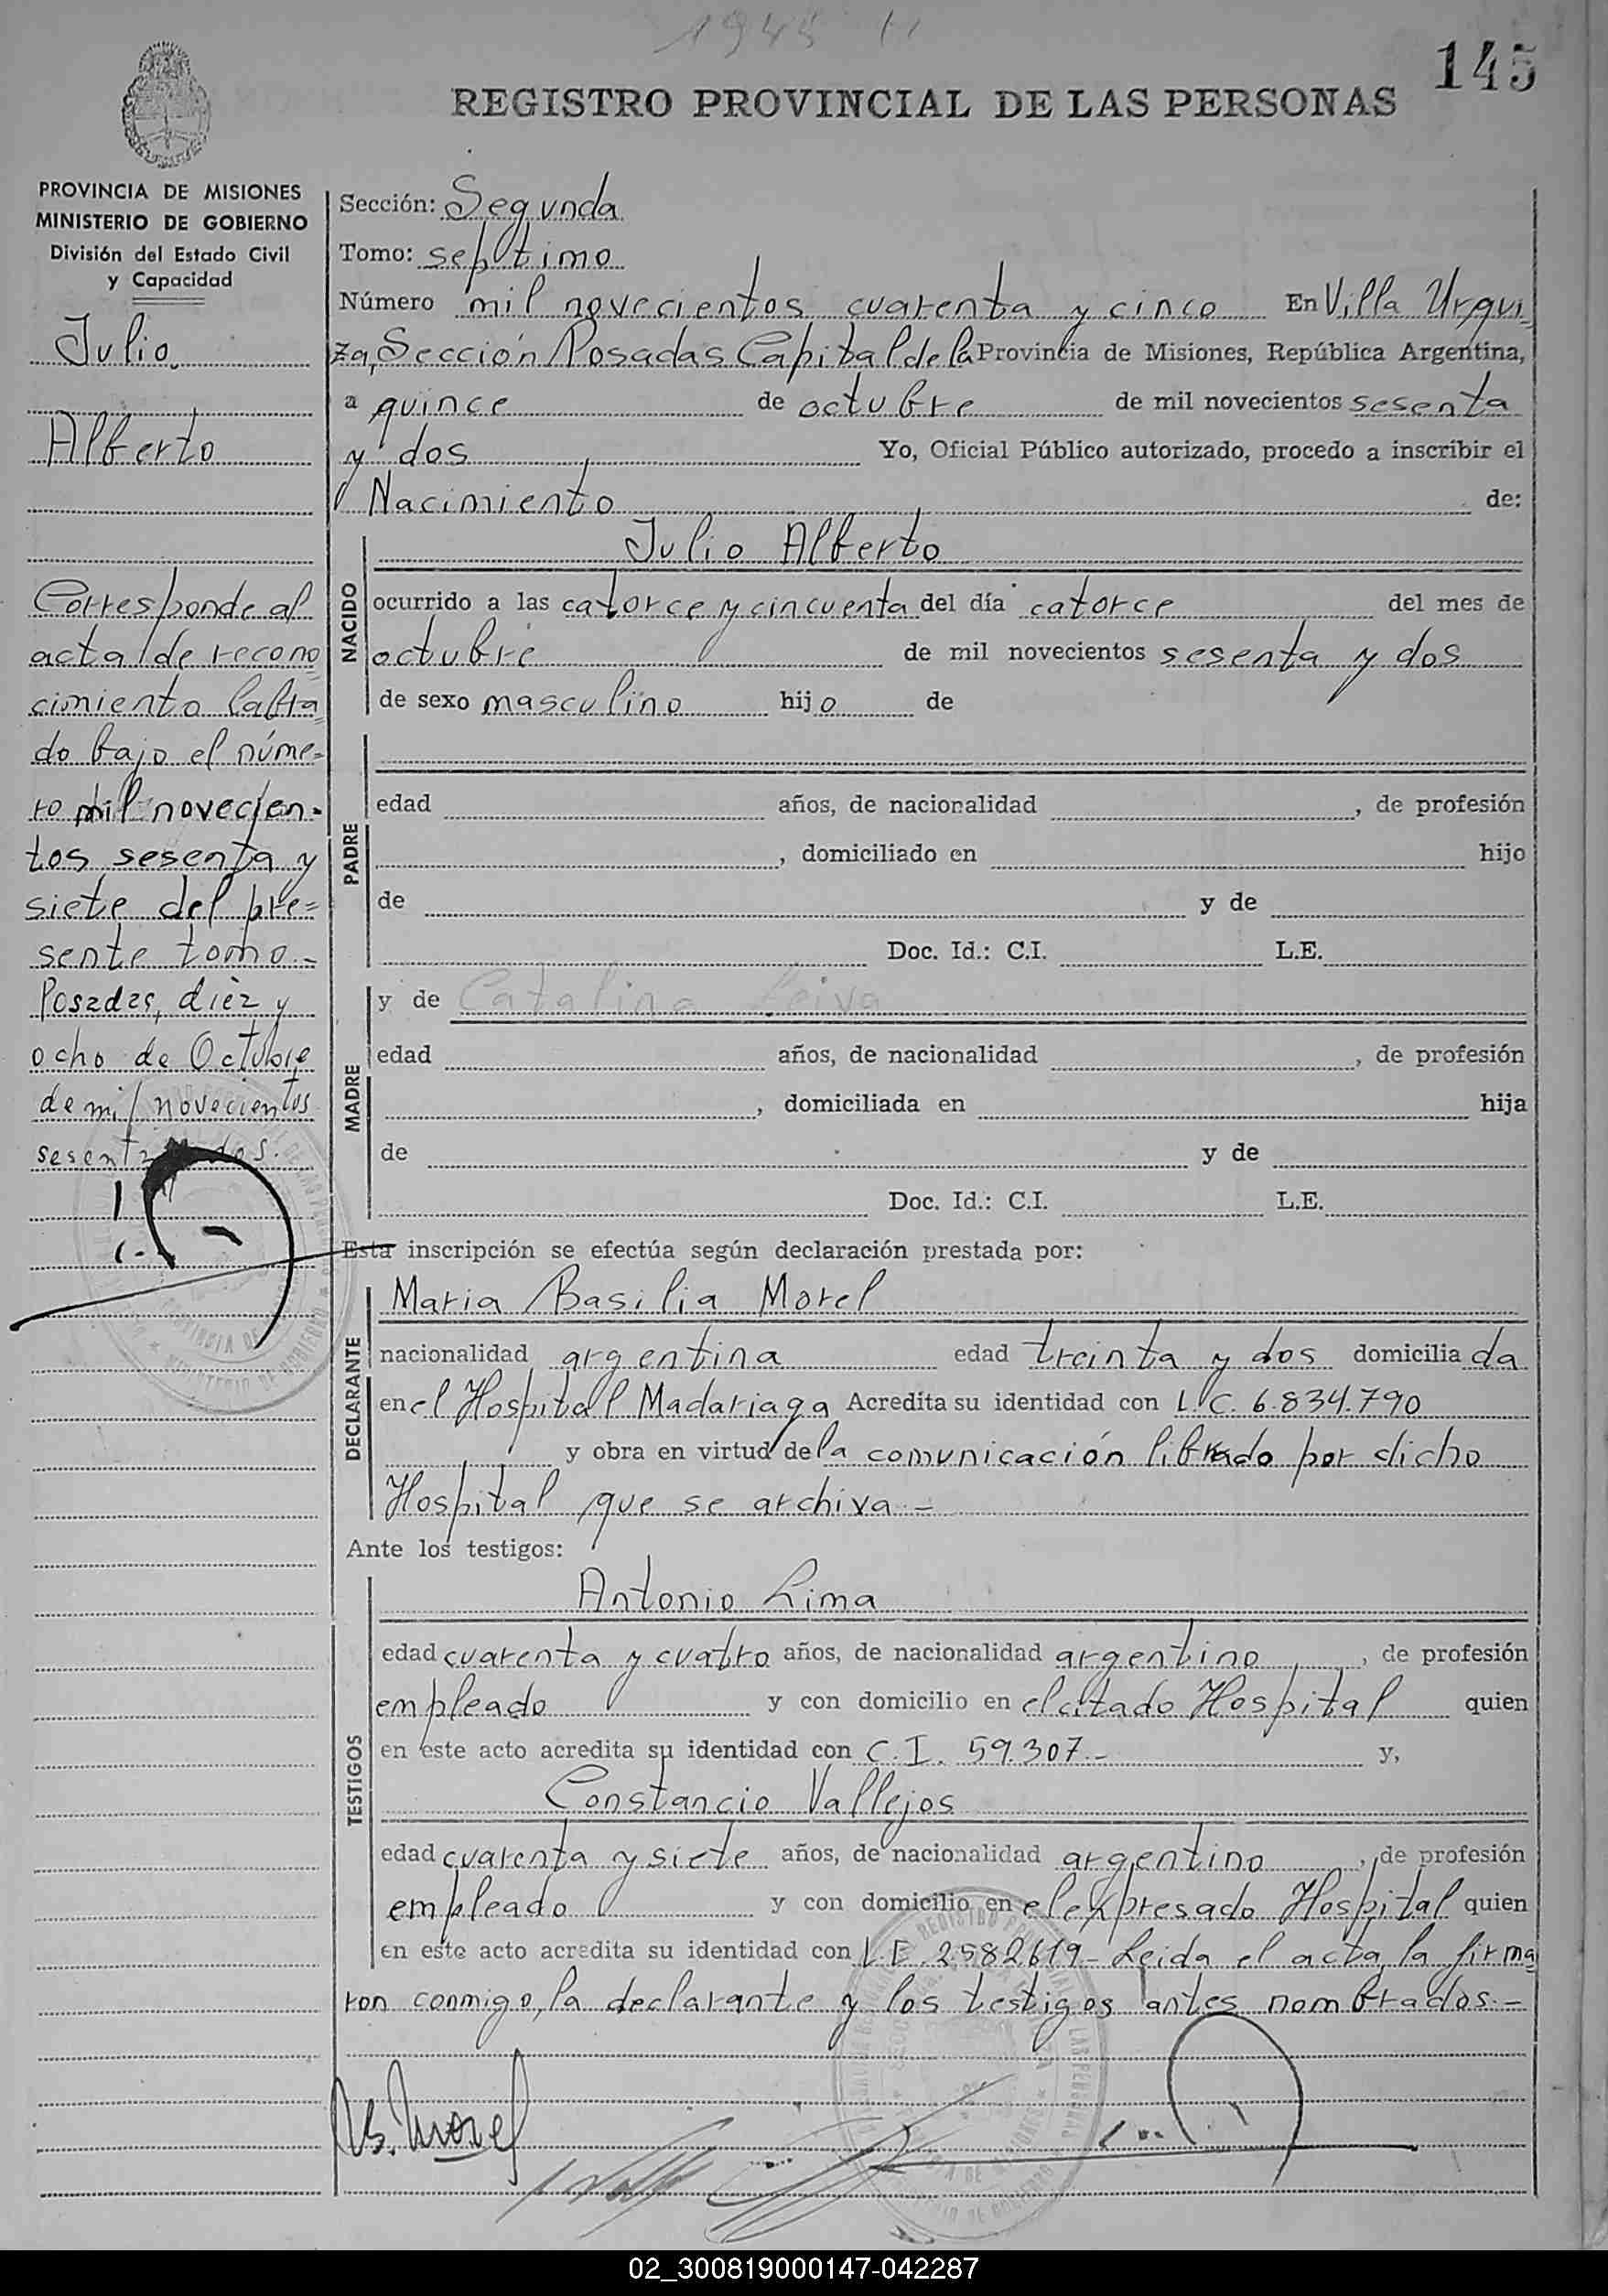 1945
145
REGISTRO PROVINCIAL DE LAS PERSONAS
PROVINCIA DE MISIONES
MINISTERIO DE GOBIERNO
División del Estado Civil
y Capacidad
Julio
Alberto
Corresponde al
acta de recono
cimiento labra=
do bajo el núme=
ro mil novecien=
tos sesenta y
siete del pre=
sente tomo.-
Posadas, diez y
ocho de Octubre
de mil novecientos
sesenta y dos.
Sección: Segunda
Tomo: septimo
Número mil novecientos cuarenta y cinco En Villa Urqui=
za, Sección Posadas Capital de la Provincia de Misiones, República Argentina,
a quince de octubre de mil novecientos sesenta
y dos Yo, Oficial Público autorizado, procedo a inscribir el
Nacimiento de:
NACIDO
Julio Alberto
ocurrido a las catorce y cincuenta del día catorce del mes de
octubre de mil novecientos sesenta y dos
de sexo masculino hijo de
PADRE
edad años, de nacionalidad , de profesión
, domiciliado en hijo
de y de
Doc. Id.: C.I. L.E.
MADRE
y de Catalina Leiva
edad años, de nacionalidad , de profesión
, domiciliada en hija
de y de
Doc. Id.: C.I. L.E.
Esta inscripción se efectúa según declaración prestada por:
DECLARANTE
Maria Basilia Morel
nacionalidad argentina edad treinta y dos domiciliada
en el Hospital Madariaga Acredita su identidad con L.C. 6.834.790
y obra en virtud de la comunicación librado por dicho
Hospital que se archiva.-
Ante los testigos:
TESTIGOS
Antonio Lima
edad cuarenta y cuatro años, de nacionalidad argentino , de profesión
empleado y con domicilio en el citado Hospital quien
en este acto acredita su identidad con C.I. 59.307.- y,
Constancio Vallejos
edad cuarenta y siete años, de nacionalidad argentino , de profesión
empleado y con domicilio en el expresado Hospital quien
en este acto acredita su identidad con L.E. 2582619- Leida el acta, la firma=
ron conmigo, la declarante y los testigos antes nombrados.-
B. Morel
02_300819000147-042287